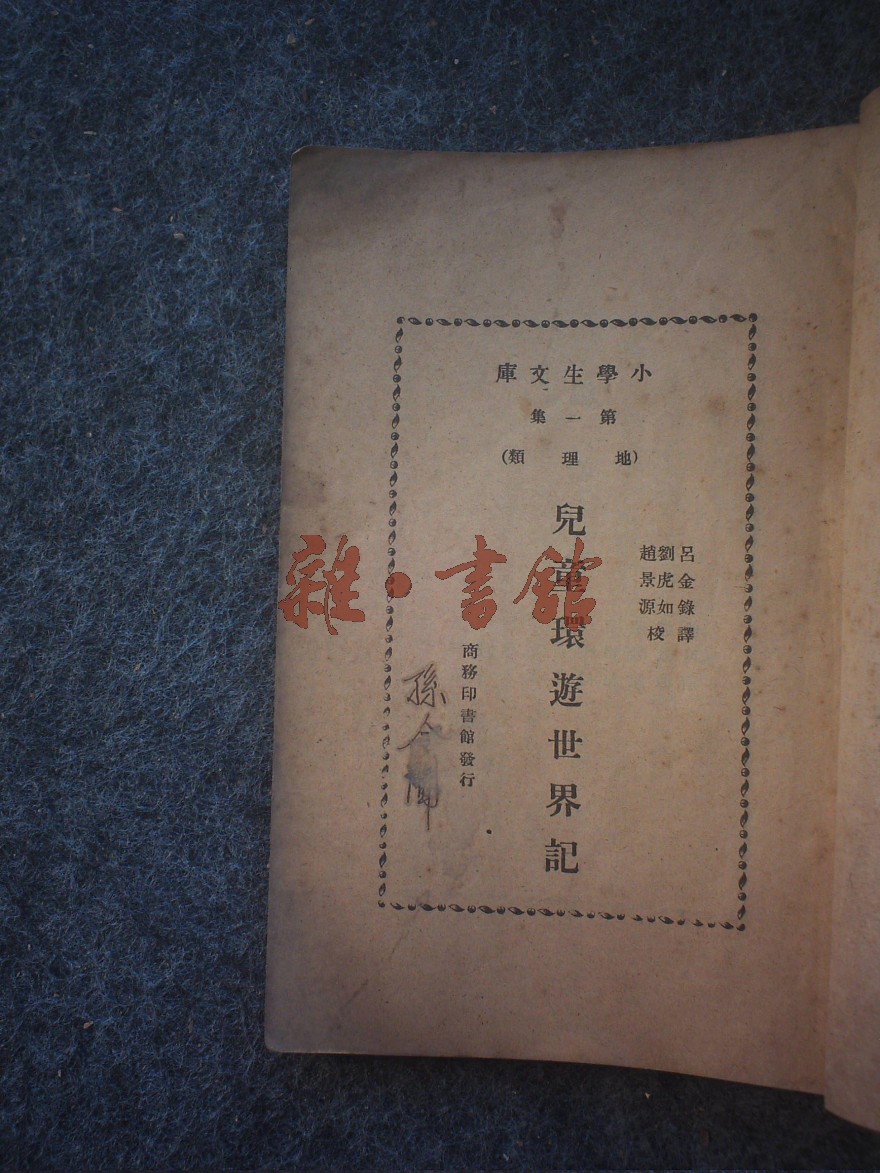 小學生文庫
第一集
(地理類)
呂金錄譯
劉虎如
趙景源校
兒童環遊世界記
商務印書館發行
孫令聞
雜·書館